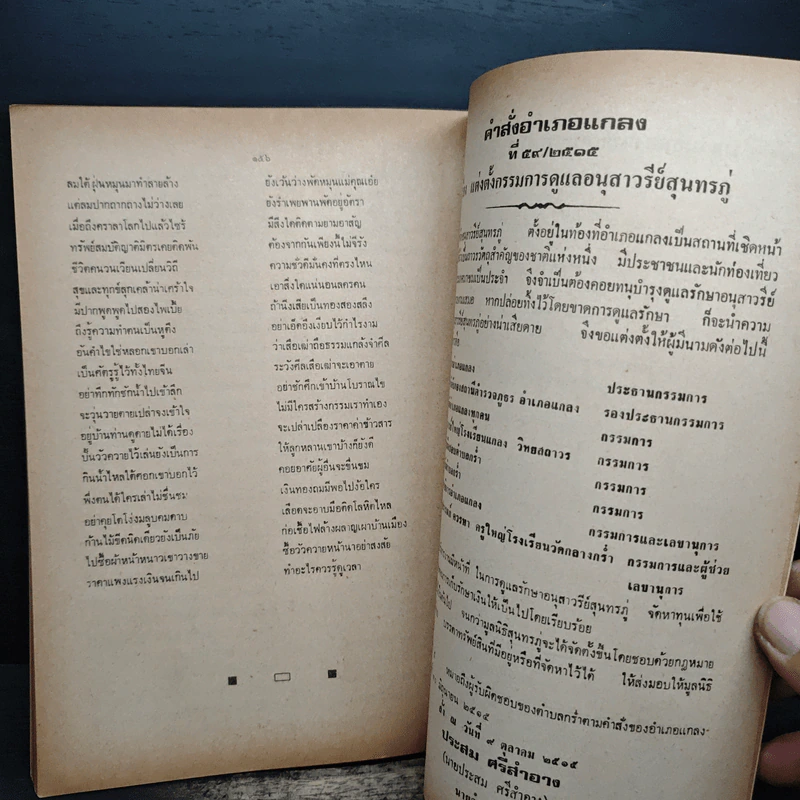 ๑๕๖
ลมใต้ ฝุ่นหมุนมาทำลายล้าง
ยังเว้นว่างพัดหมุนแม่คุณเอ๋ย
แต่ลมปากถากถางไม่ว่างเลย
ยังรำเพยพานพัดอยู่อัตรา
เมื่อถึงคราลาโลกไปแล้วไซร้
มีสิ่งใดติดตามยามอาสัญ
ทรัพย์สมบัติญาติมิตรเคยคิดพัน
ต้องจากกันเพียงนี้ไม่จีรัง
ชีวิตคนวนเวียนเปลี่ยนวิถี
ความชั่วดีมั่นคงที่ตรงไหน
สุขและทุกข์ลุกเคล้าน่าเศร้าใจ
เอาสิ่งใดแน่นอนละครคน
มีปากพูดพูดไปสองไพเบี้ย
ถ้านิ่งเสียเป็นทองสองสลึง
ถึงรู้ความทำคนเป็นหูตึง
อย่าเอ็ดอึงเงียบไว้กำไรงาม
อันคำไขใช่หลอกเขาบอกเล่า
ว่าเสือเฒ่าถือธรรมแกล้งจำศีล
เป็นศัตรูรู้ไว้ทั้งไทยจีน
ระวังศีลเสือเฒ่าจะเอาตาย
อย่าทึกทักชักน้ำไปเข้าลึก
อย่าชักศึกเข้าบ้านโบราณไข
จะวุ่นวายตายเปล่าจงเข้าใจ
ไม่มีใครสร้างกรรมเราทำเอง
อยู่บ้านท่านดูดายไม่ได้เรื่อง
จะเปล่าเปลืองราคาค่าข้าวสาร
ปั้นวัวควายไว้เล่นยังเป็นการ
ให้ลูกหลานเขาบ้างก็ยังดี
กินน้ำไหลใต้ศอกเขาบอกไว้
คอยอาศัยผู้อื่นจะขื่นขม
พึ่งตนได้ใครเล่าไม่ชื่นชม
เงินทองถมมีพอไปง้อใคร
อย่าคุยโตโง่งมลูบคมดาบ
เลือดจะอาบมือคิดโลหิตไหล
ก้านไม้ขีดนิดเดียวยังเป็นภัย
ก่อเชื้อไฟล้างผลาญเผาบ้านเมือง
ไปซื้อผ้าหน้าหนาวเขาวางขาย
ซื้อวัวควายหน้านาอย่าสงสัย
ราคาแพงแรงเงินจนเกินไป
ทำอะไรควรรู้ดูเวลา
คำสั่งอำเภอแกลง
ที่ ๕๙/๒๕๑๕
แต่งตั้งกรรมการดูแลอนุสาวรีย์สุนทรภู่
สุนทรภู่ ตั้งอยู่ในท้องที่อำเภอแกลงเป็นสถานที่เชิดหน้า
สำคัญของชาติแห่งหนึ่ง มีประชาชนและนักท่องเที่ยว
เป็นประจำ จึงจำเป็นต้องคอยทนุบำรุงดูแลรักษาอนุสาวรีย์
หากปล่อยทิ้งไว้โดยขาดการดูแลรักษา ก็จะนำความ
สุนทรภู่อย่างน่าเสียดาย จึงขอแต่งตั้งให้ผู้มีนามดังต่อไปนี้
ประธานกรรมการ
สถานีตำรวจภูธร อำเภอแกลง รองประธานกรรมการ
กรรมการ
โรงเรียนแกลง วิทยสถาวร กรรมการ
กรรมการ
กรรมการ
กรรมการและเลขานุการ
ครูใหญ่โรงเรียนวัดกลางกร่ำ กรรมการและผู้ช่วย
เลขานุการ
มีหน้าที่ ในการดูแลรักษาอนุสาวรีย์สุนทรภู่ จัดหาทุนเพื่อใช้
เก็บรักษาเงินให้เป็นไปโดยเรียบร้อย
จนกว่ามูลนิธิสุนทรภู่จะได้จัดตั้งขึ้นโดยชอบด้วยกฎหมาย
บรรดาทรัพย์สินที่มีอยู่หรือที่จัดหาไว้ได้ ให้ส่งมอบให้มูลนิธิ
หมายถึงผู้รับผิดชอบของตำบลกร่ำตามคำสั่งของอำเภอแกลง
๒๕๑๕
สั่ง ณ วันที่ ๙ ตุลาคม ๒๕๑๕
ประสม ศรีสำอาง
(นายประสม ศรีสำอาง)